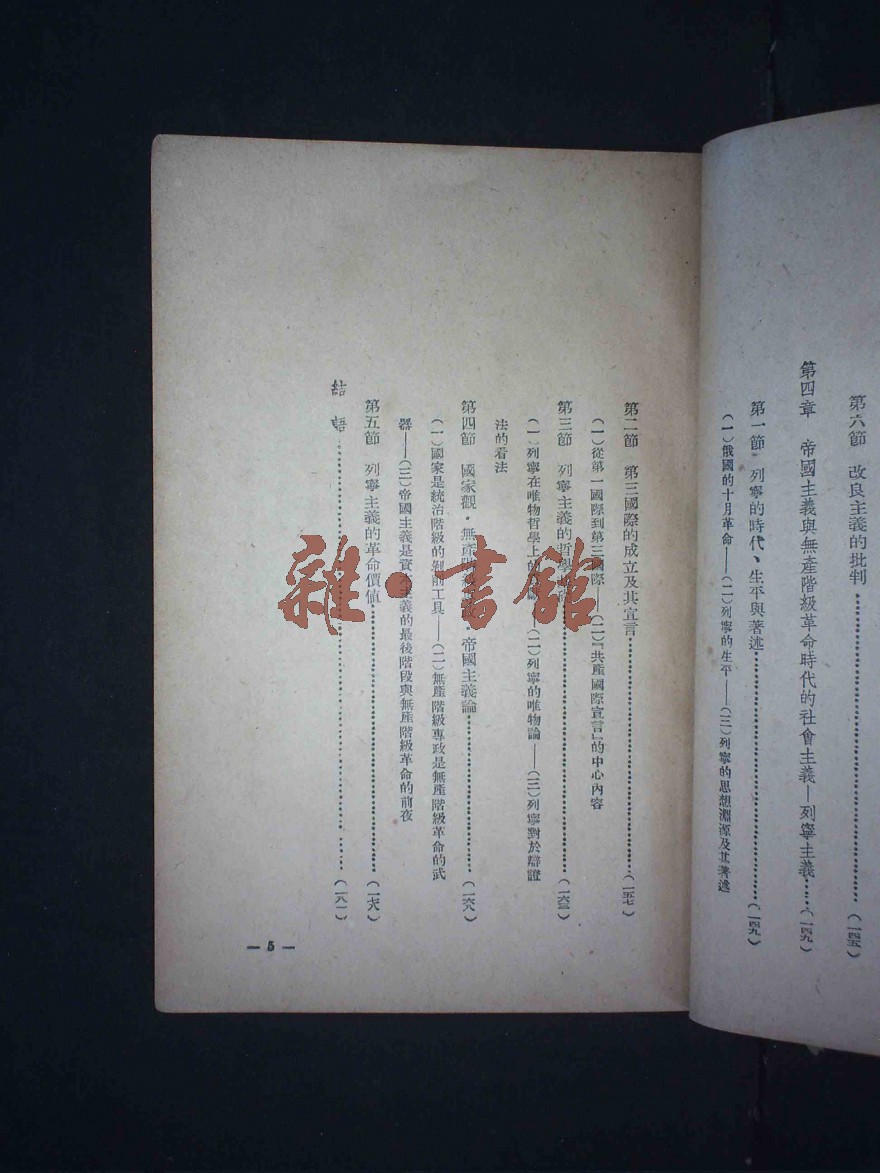 第六節 改良主義的批判……(一四五)
第四章 帝國主義與無產階級革命時代的社會主義—列寧主義……(一四九)
第一節 列寧的時代、生平與著述……(一四九)
(一)俄國的十月革命——(二)列寧的生平——(三)列寧的思想淵源及其著述
第二節 第三國際的成立及其宣言……(一五七)
(一)從第一國際到第三國際——(二)「共產國際宣言」的中心內容
第三節 列寧主義的哲學……(一六三)
(一)列寧在唯物哲學上的——(二)列寧的唯物論——(三)列寧對於辯證
法的看法
第四節 國家觀·無產階級·帝國主義論……(一六八)
(一)國家是統治階級的剝削工具——(二)無產階級專政是無產階級革命的武
器——(三)帝國主義是資本主義的最後階段與無產階級革命的前夜
第五節 列寧主義的革命價值……(一七八)
結語……(一八一)
— 5 —
雜·書館